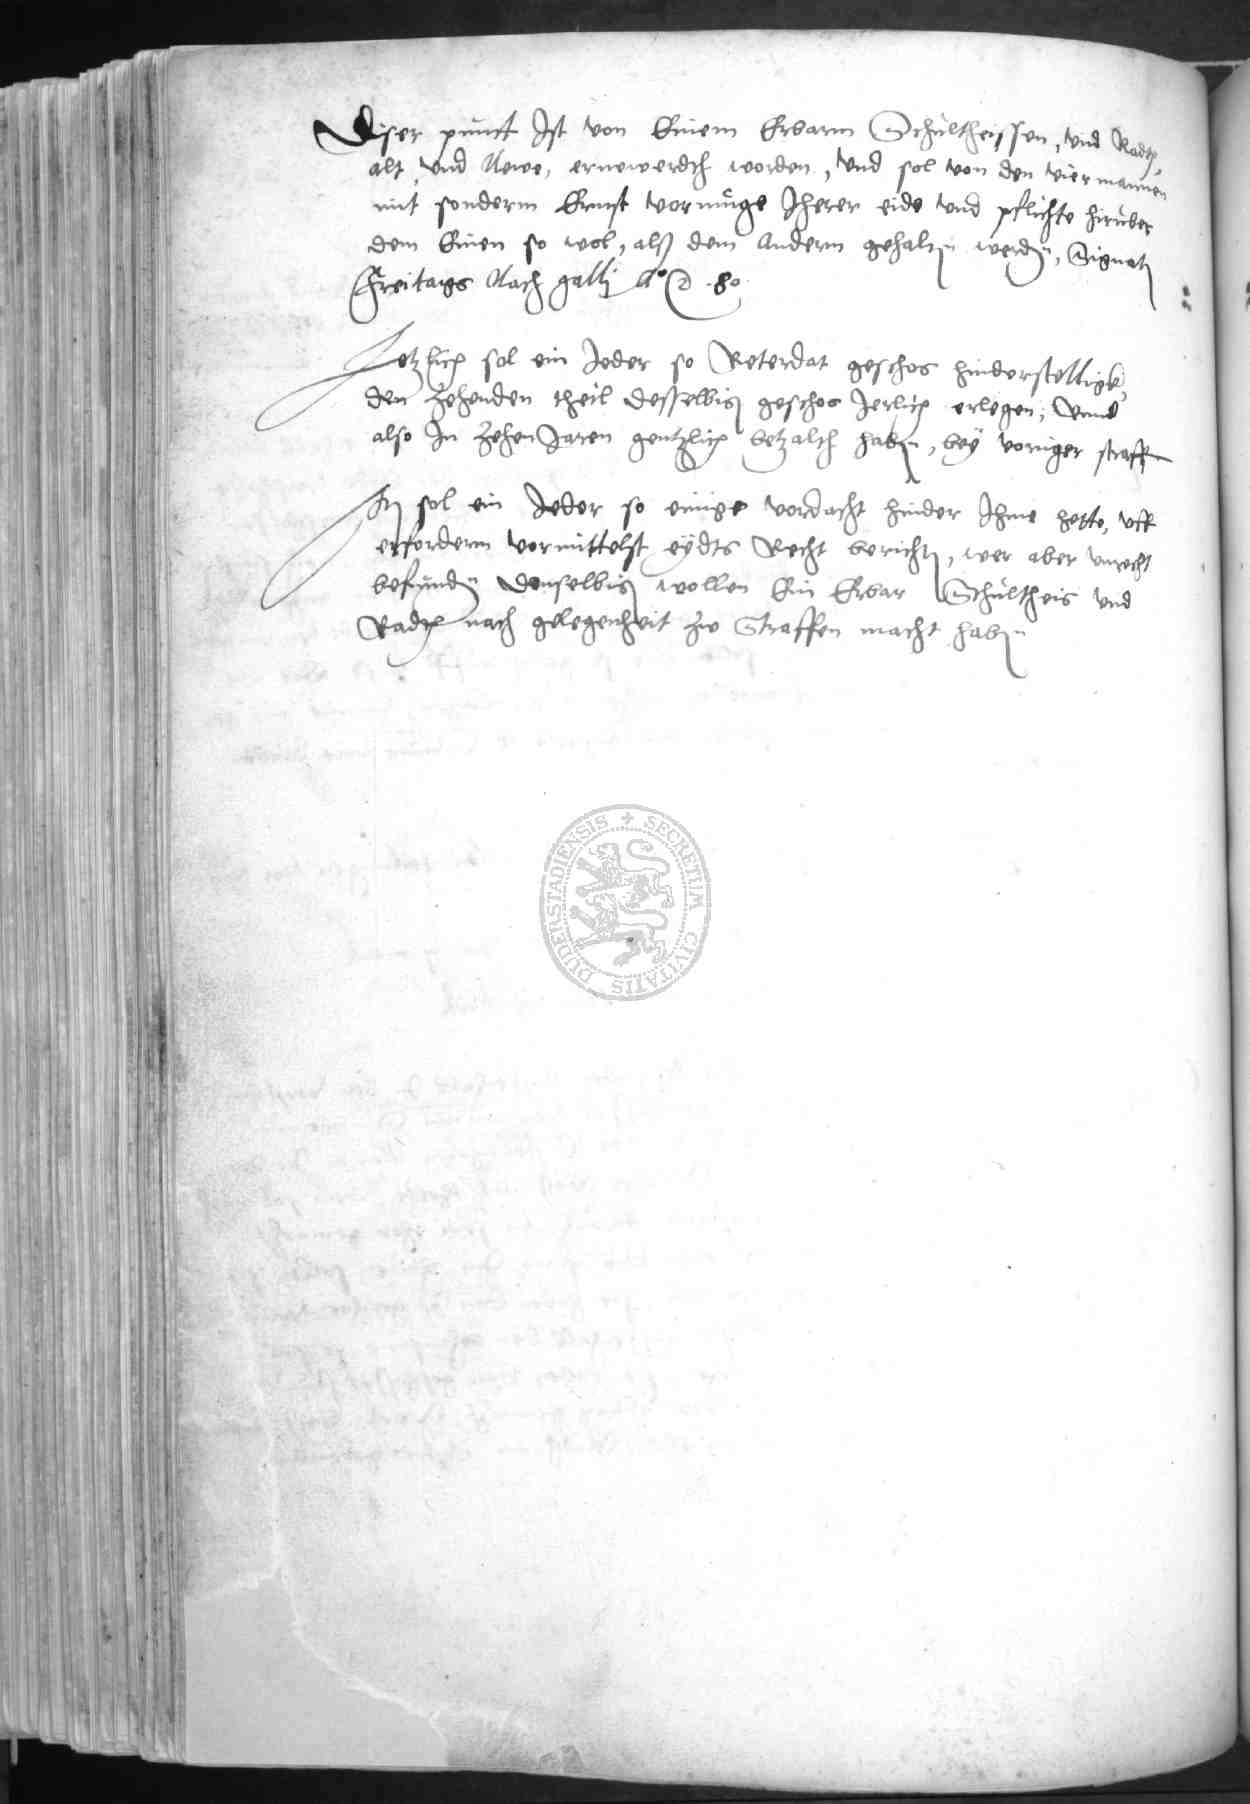 Diser punct Ist von Einem Erbarm Schultheissen, und Radth
alt und Newe, ernewerdth worden, und sol von den vier mannen
mit sonderm Ernst vormüge Iherer eide und pflichte hirüber
dem Einen so wol, alß dem Anderm gehaltn werdn, Signat
Freitags Nach Galli Ao D. 80.
Letzlich sol ein Jeder so geschos hinderstellight
den Zehenden theil desselbign geschos Jerlich erlegen, Unnd
also In Zehen Jaren gentzlich betzalth habn, bey voriger straff
Itzt sol ein Jeder so einige vordacht hinder Ihme hette, uff
erforderm vormittelst eydts Recht berichtn, wer aber unrecht
befundn denselbign wollen Ein Erbar Schultheis und
Radth nach gelegenheit zw Straffen macht habn
SECRETUM CIVITATIS DUDERSTADIENSIS